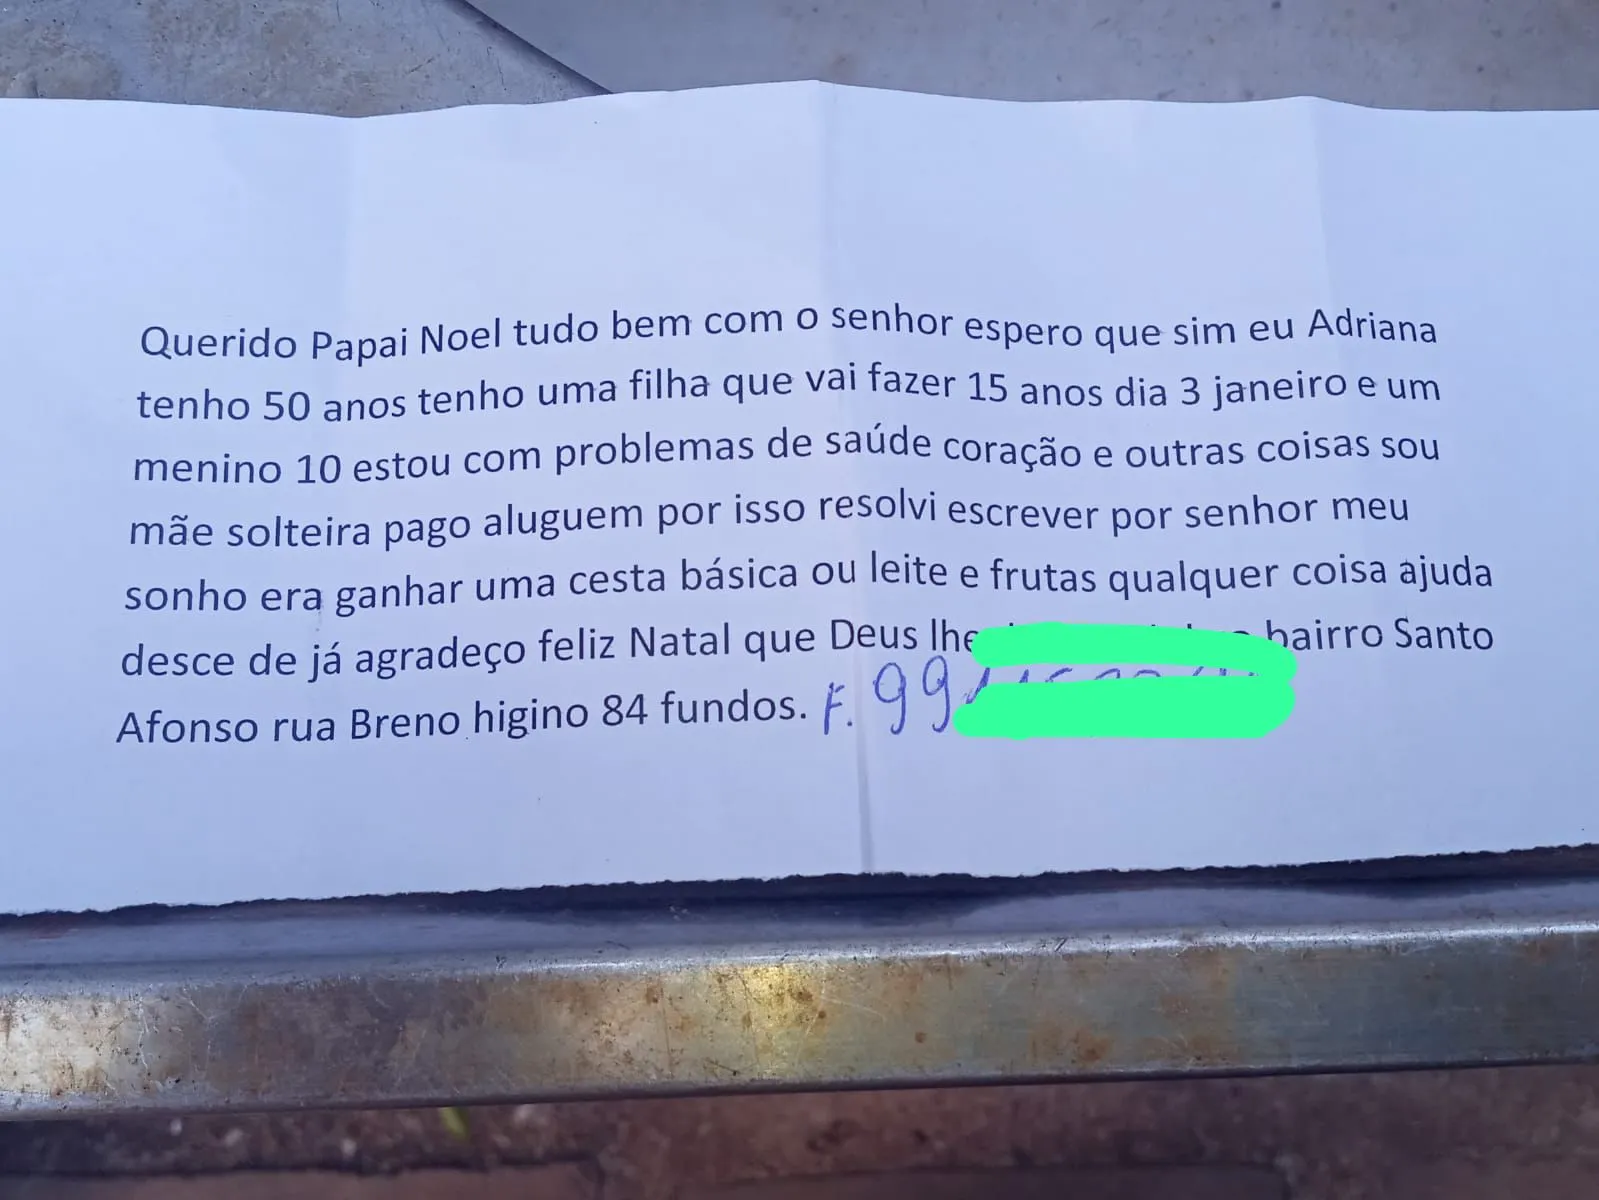 Querido Papai Noel tudo bem com o senhor espero que sim eu Adriana
tenho 50 anos tenho uma filha que vai fazer 15 anos dia 3 janeiro e um
menino 10 estou com problemas de saúde coração e outras coisas sou
mãe solteira pago aluguem por isso resolvi escrever por senhor meu
sonho era ganhar uma cesta básica ou leite e frutas qualquer coisa ajuda
desce de já agradeço feliz Natal que Deus lhe bairro Santo
Afonso rua Breno higino 84 fundos. F. 99